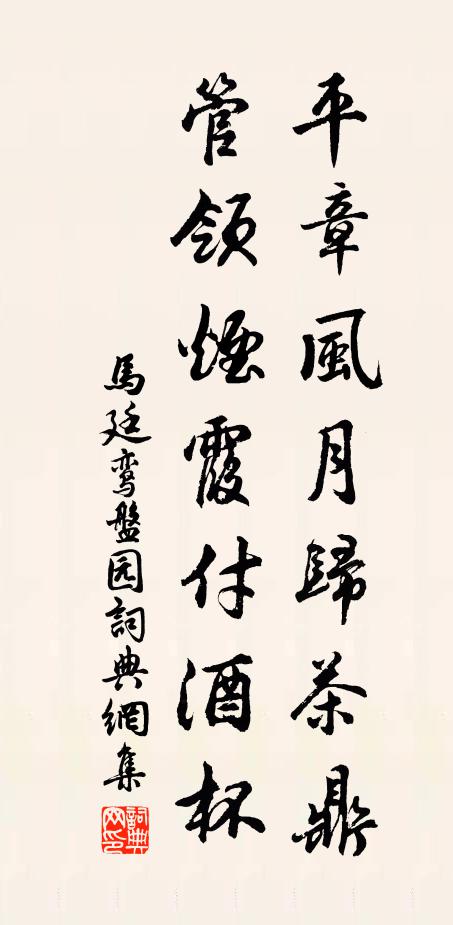 平章風月歸茶鼎
管領煙霞付酒杯
馬廷鸾盤园詞典網集
詞典网印